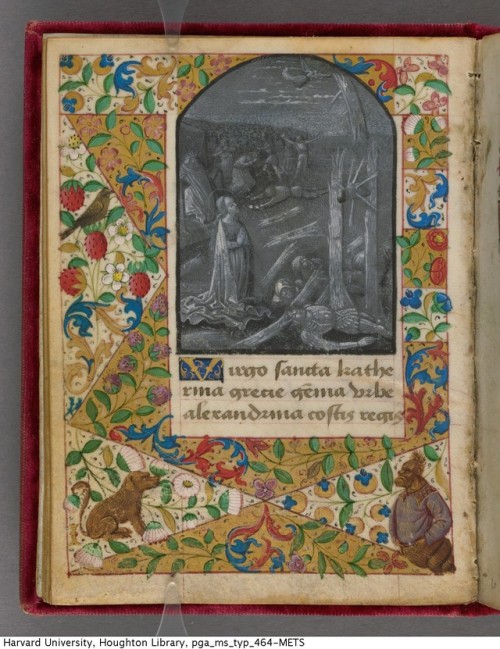 Virgo sancta kathe
rina grecie gema vrbe
alexandrina costis regis
Harvard University, Houghton Library, pga_ms_typ_464-METS